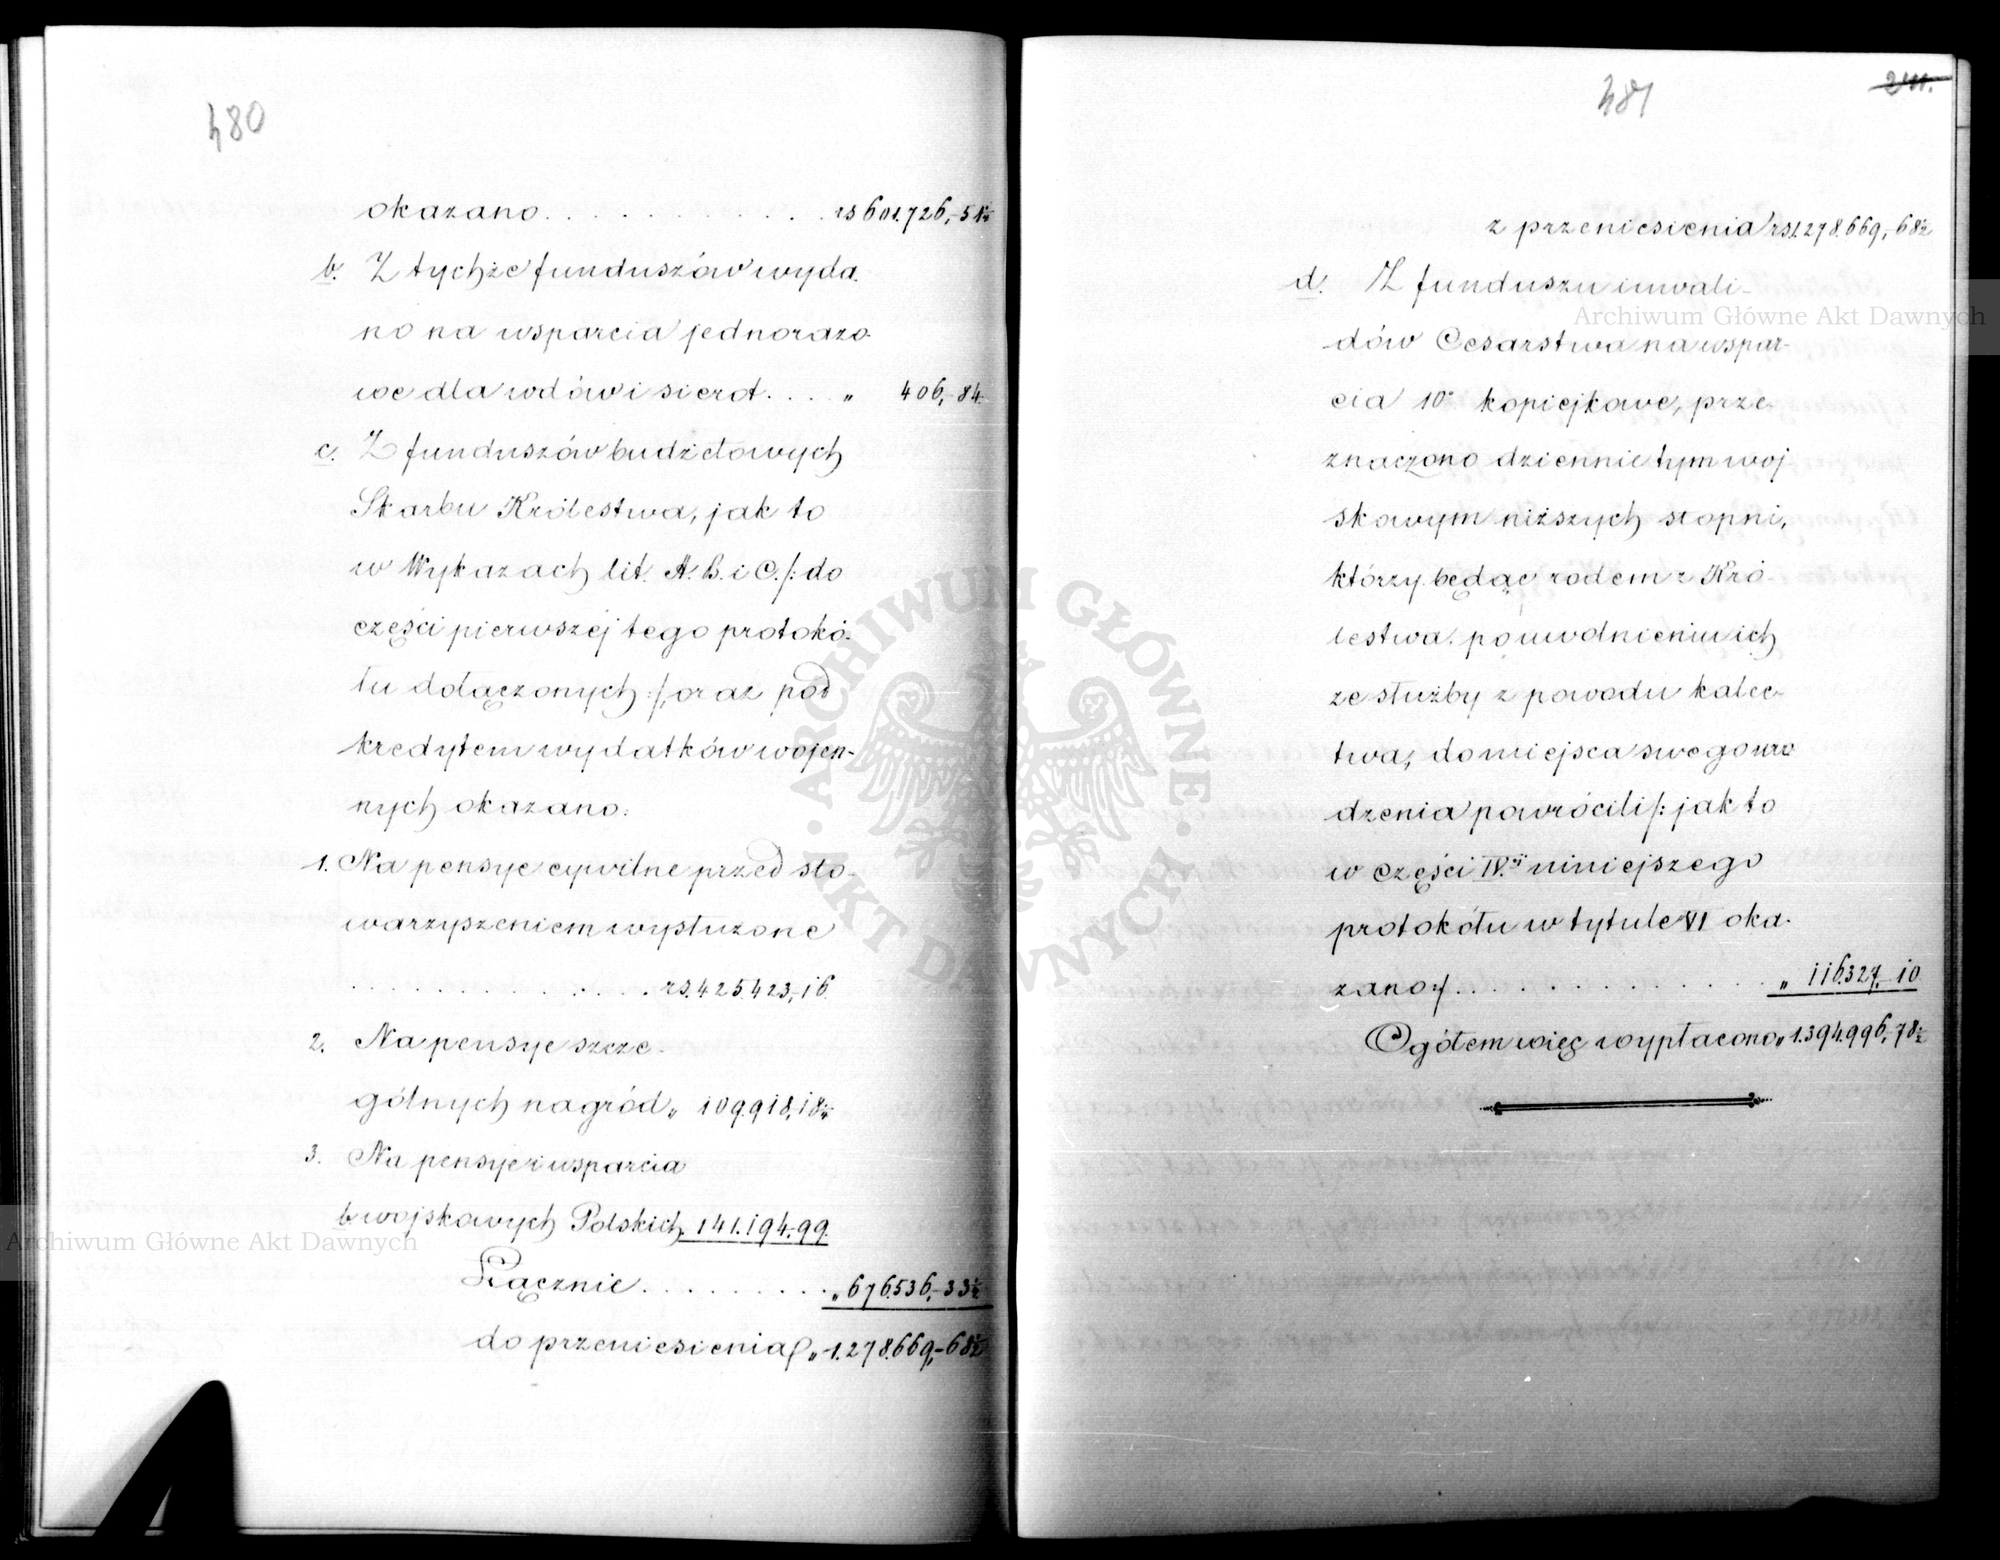 480
okazano. . . . . . . . . . . . rs 601.726,-51½
b. Z tychże funduszów wyda-
no na wsparcia jednorazo-
we dla wdów i sierot. . . . " 406,-84.
c. Z funduszów budżetowych
Skarbu Królestwa, jak to
w Wykazach lit. A. B. i C. /: do
części pierwszej tego protokó-
łu dołączonych :/, oraz pod
kredytem wydatków wojen-
nych okazano:
1. Na pensye cywilne przed sto-
warzyszeniem wysłużone
. . . . . . . . . . . . . . rs. 425.423,-16.
2. Na pensye szcze-
gólnych nagród " 109.918,18½
3. Na pensye i wsparcia
b wojskowych Polskich " 141.194.-99.
Łącznie . . . . . . . . . " 676.536,-33½
do przeniesienia " 1.278.669,-68½
481
211.
z przeniesienia rs 1.278.669,-68½
d. Z funduszu inwali-
dów Cesarstwa na wspar-
cia 10o kopiejkowe, prze-
znaczono dziennie tym woj
skowym niższych stopni,
którzy będąc rodem z Kró-
lestwa. po uwolnieniu ich
ze służby z powodu kalec-
twa, do miejsca swego uro
dzenia powrócili /: jak to
w części IV.ej niniejszego
protokółu w tytule VI oka-
zano :/ . . . . . . . . . . . . . . " 116.327,-10
Ogółem więc wypłacono " 1.394.996,-78½
ARCHIWUM GŁÓWNE AKT DAWNYCH
Archiwum Główne Akt Dawnych
Archiwum Główne Akt Dawnych